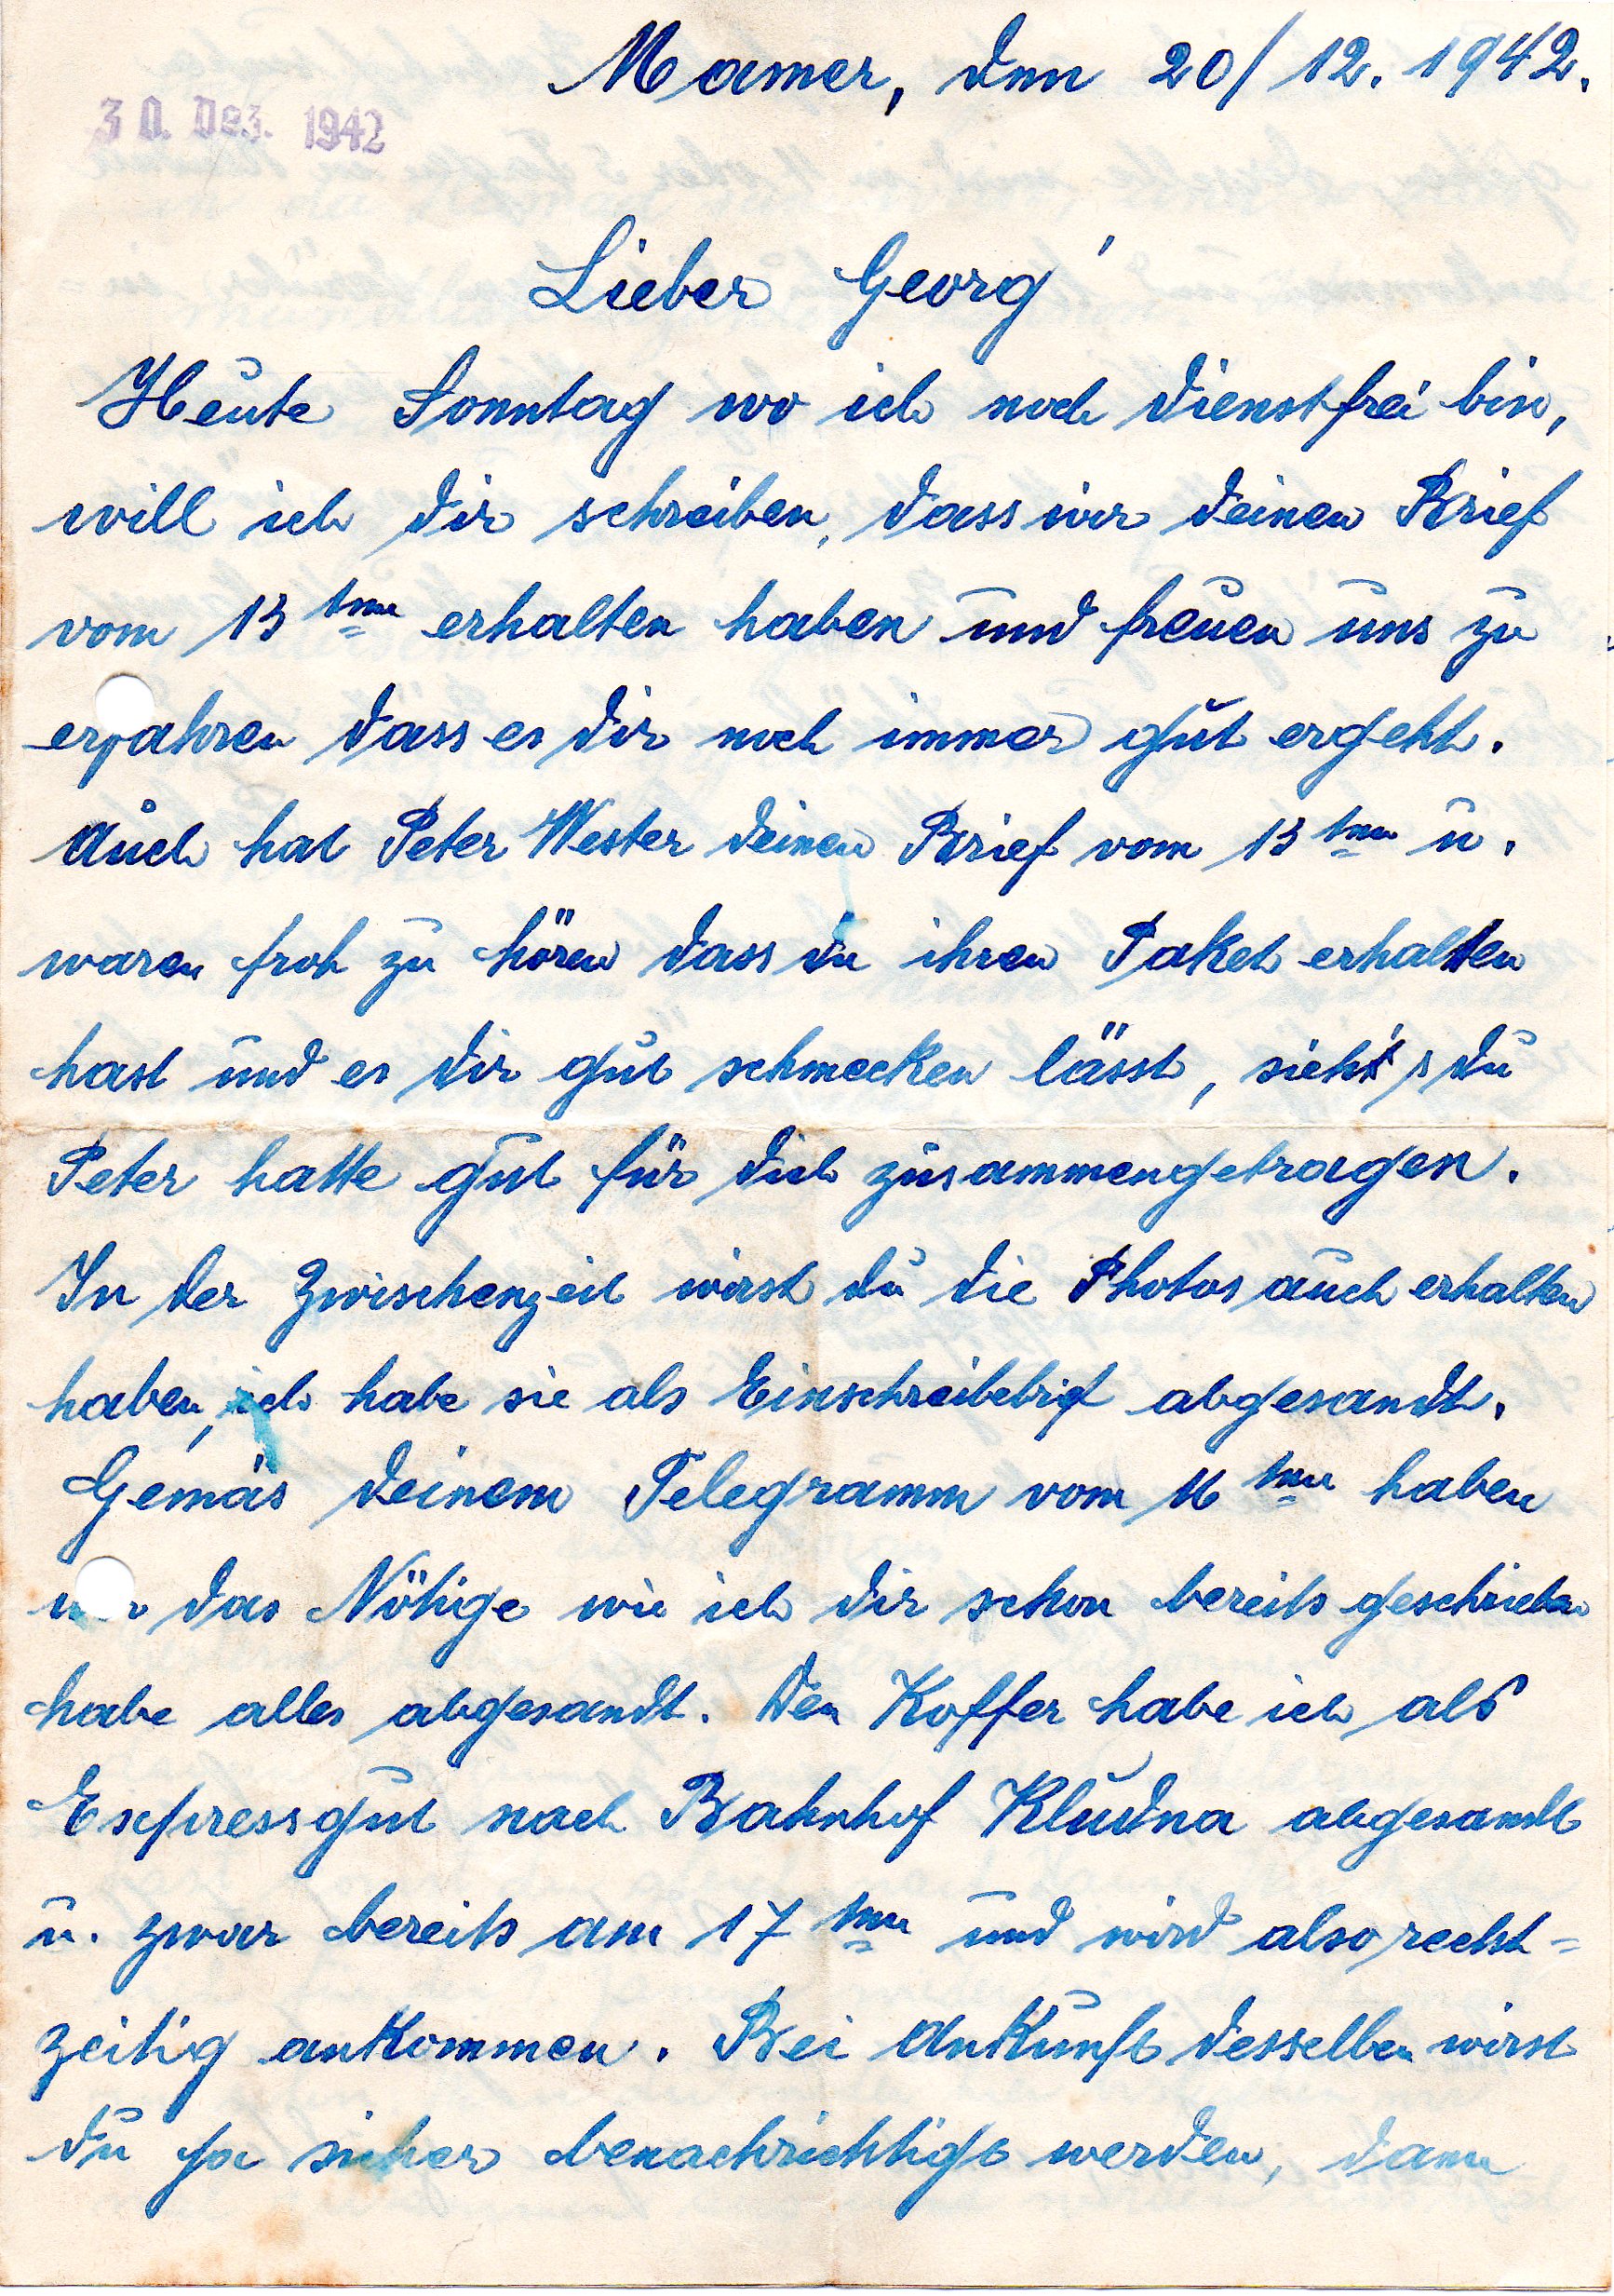 Mamer, den 20/12. 1942.
30. Dez. 1942
Lieber Georg
Heute Sonntag wo ich noch dienstfrei bin,
will ich dir schreiben, dass wir deinen Brief
vom 13ten erhalten haben und freuen uns zu
erfahren dass es dir noch immer gut ergeht.
Auch hat Peter Wester deinen Brief vom 13ten u.
waren froh zu hören dass du ihren Paket erhalten
hast und es dir gut schmecken lässt, sieht's du
Peter hatte gut für dich zusammengetragen.
In der Zwischenzeit wirst du die Photos auch erhalten
haben, ich habe sie als Einschreibebrief abgesandt.
Gemäs deinem Telegramm vom 16ten haben
wir das Nötige wie ich dir schon bereits geschrieben
habe alles abgesandt. Den Koffer habe ich als
Expressgut nach Bahnhof Kludna abgesandt
u. zwar bereits am 17ten und wird also recht-
zeitig ankommen. Bei Ankunft desselben wirst
du ja sicher benachrichtigt werden, dann